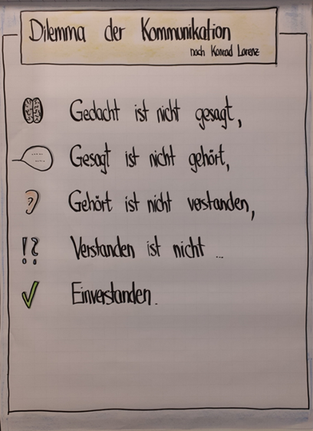 Dilemma der Kommunikation
nach Konrad Lorenz
Gedacht ist nicht gesagt,
Gesagt ist nicht gehört,
Gehört ist nicht verstanden,
!? Verstanden ist nicht ...
Einverstanden.